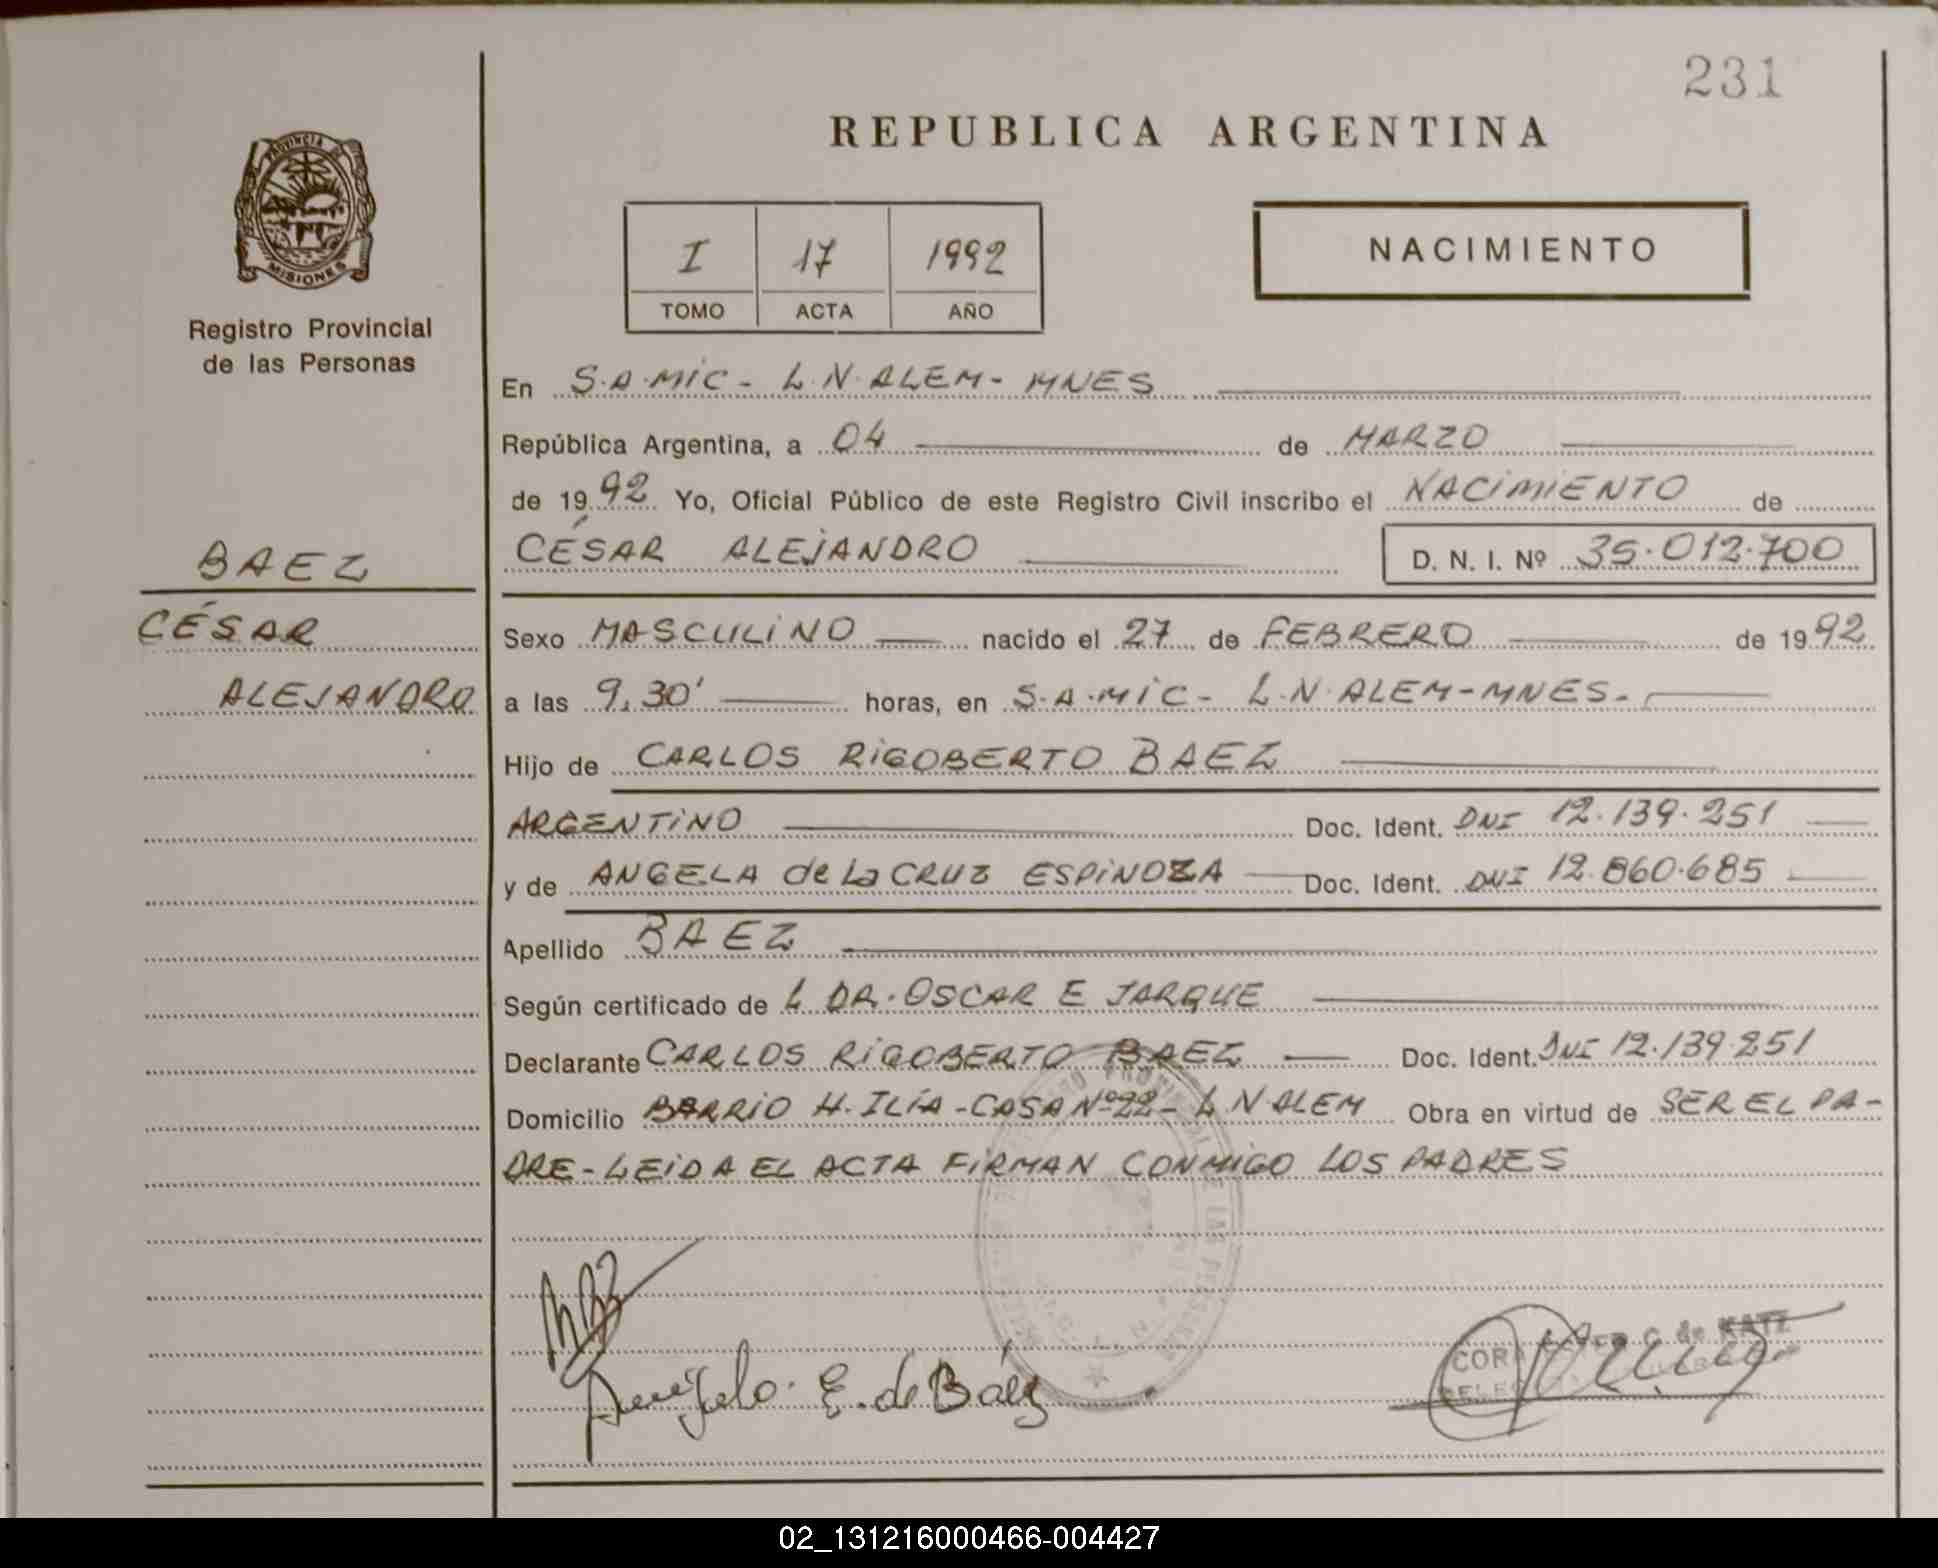 231
REPUBLICA ARGENTINA
PROVINCIA DE
MISIONES
Registro Provincial
de las Personas
I 17 1992
TOMO ACTA AÑO
NACIMIENTO
En S.A.MIC - L.N.ALEM - MNES
República Argentina, a 04 de MARZO
de 1992 Yo, Oficial Público de este Registro Civil inscribo el NACIMIENTO de
CÉSAR ALEJANDRO D. N. I. Nº 35.012.700
BAEZ
CÉSAR
ALEJANDRO
Sexo MASCULINO nacido el 27 de FEBRERO de 1992
a las 9,30' horas, en S.A.MIC - L.N.ALEM-MNES-
Hijo de CARLOS RIGOBERTO BAEZ
ARGENTINO Doc. Ident. DNI 12.139.251
y de ANGELA de La CRUZ ESPINOZA Doc. Ident. DNI 12.860.685
Apellido BAEZ
Según certificado de L DR. OSCAR E JARQUE
Declarante CARLOS RIGOBERTO BAEZ Doc. Ident. DNI 12.139.251
Domicilio BARRIO H. ILÍA - CASA Nº 22 - L.N.ALEM Obra en virtud de SER EL PA-
DRE - LEIDA EL ACTA FIRMAN CONMIGO LOS PADRES
E. de Báez
C. de KATZ
02_131216000466-004427